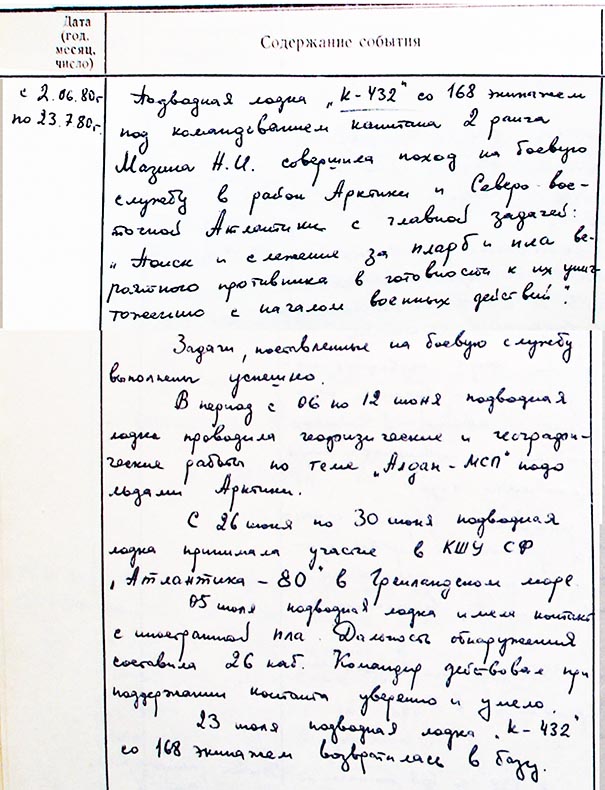 Дата
(год,
месяц,
число)
Содержание события
с 2.06.80г
по 23.780г.
Подводная лодка „К-432" со 168 экипажем
под командованием капитана 2 ранга
Мазина Н.И. совершила поход на боевую
службу в район Арктики и Северо-вос-
точной Атлантики с главной задачей:
„Поиск и слежение за пларб и пла ве-
роятного противника в готовности к их унич-
тожению с началом военных действий".
Задачи, поставленные на боевую службу
выполнены успешно.
В период с 06 по 12 июня подводная
лодка проводила геофизические и географи-
ческие работы по теме „Алдан-МСП" подо
льдами Арктики.
С 26 июня по 30 июня подводная
лодка принимала участие в КШУ СФ
„Атлантика-80" в Гренландском море.
05 июля подводная лодка имела контакт
с иностранной пла. Дальность обнаружения
составила 26 каб. Командир действовал при
поддержании контакта уверенно и умело.
23 июля подводная лодка „К-432"
со 168 экипажем возвратилась в базу.